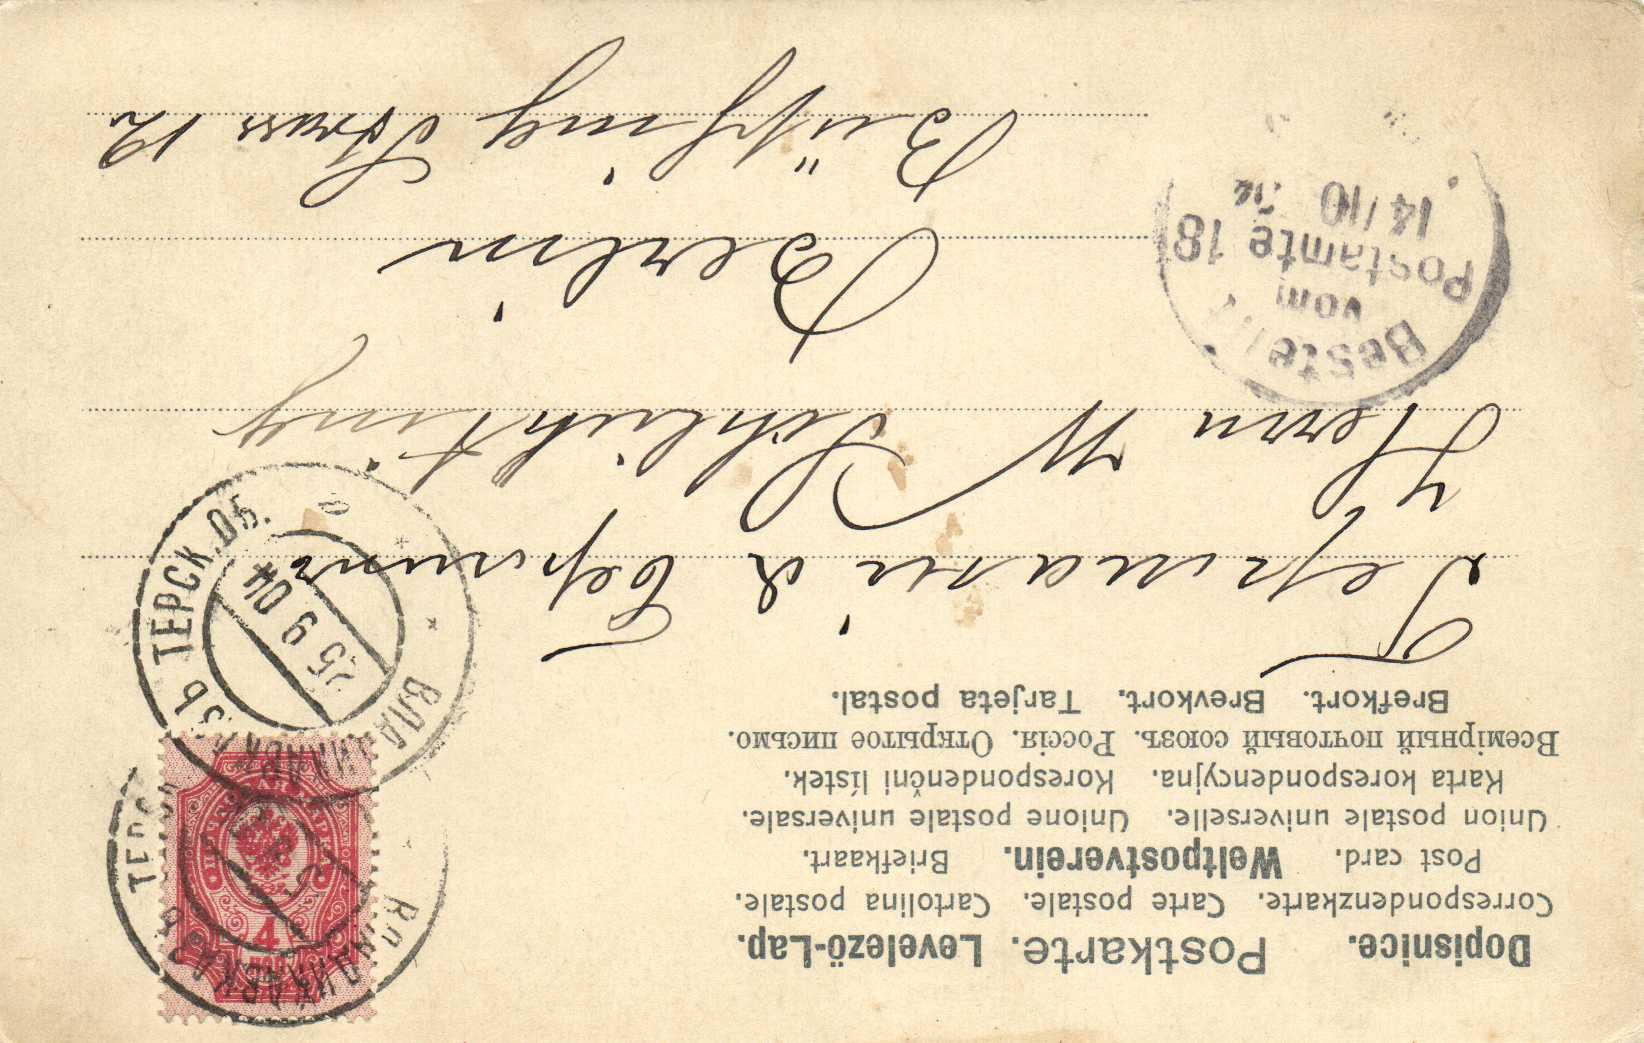 Dopisnice. Postkarte. Levelező-Lap.
Correspondenzkarte. Carte postale. Cartolina postale.
Post card. Weltpostverein. Briefkaart.
Union postale universelle. Unione postale universale.
Karta korespondencyjna. Korespondenční lístek.
Всемірный почтовый союзъ. Россія. Открытое письмо.
Brefkort. Brevkort. Tarjeta postal.
4
ВЛАДИКАВКАЗЪ ТЕРСК. ОБ.
25 9 04
Германія Берлинъ
Herrn W Schlichting
Berlin
Strasse 12
Bestellt
vom
Postamte 18
14/10